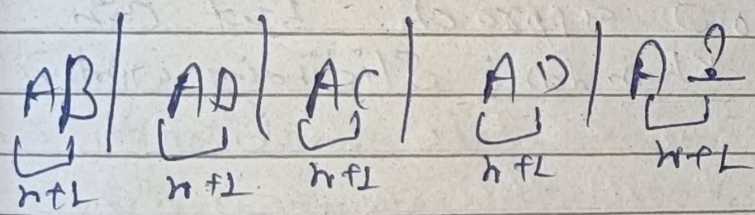 AB | AD | AC | AD | A ?
n+1 n+1 n+1 n+1 n+1